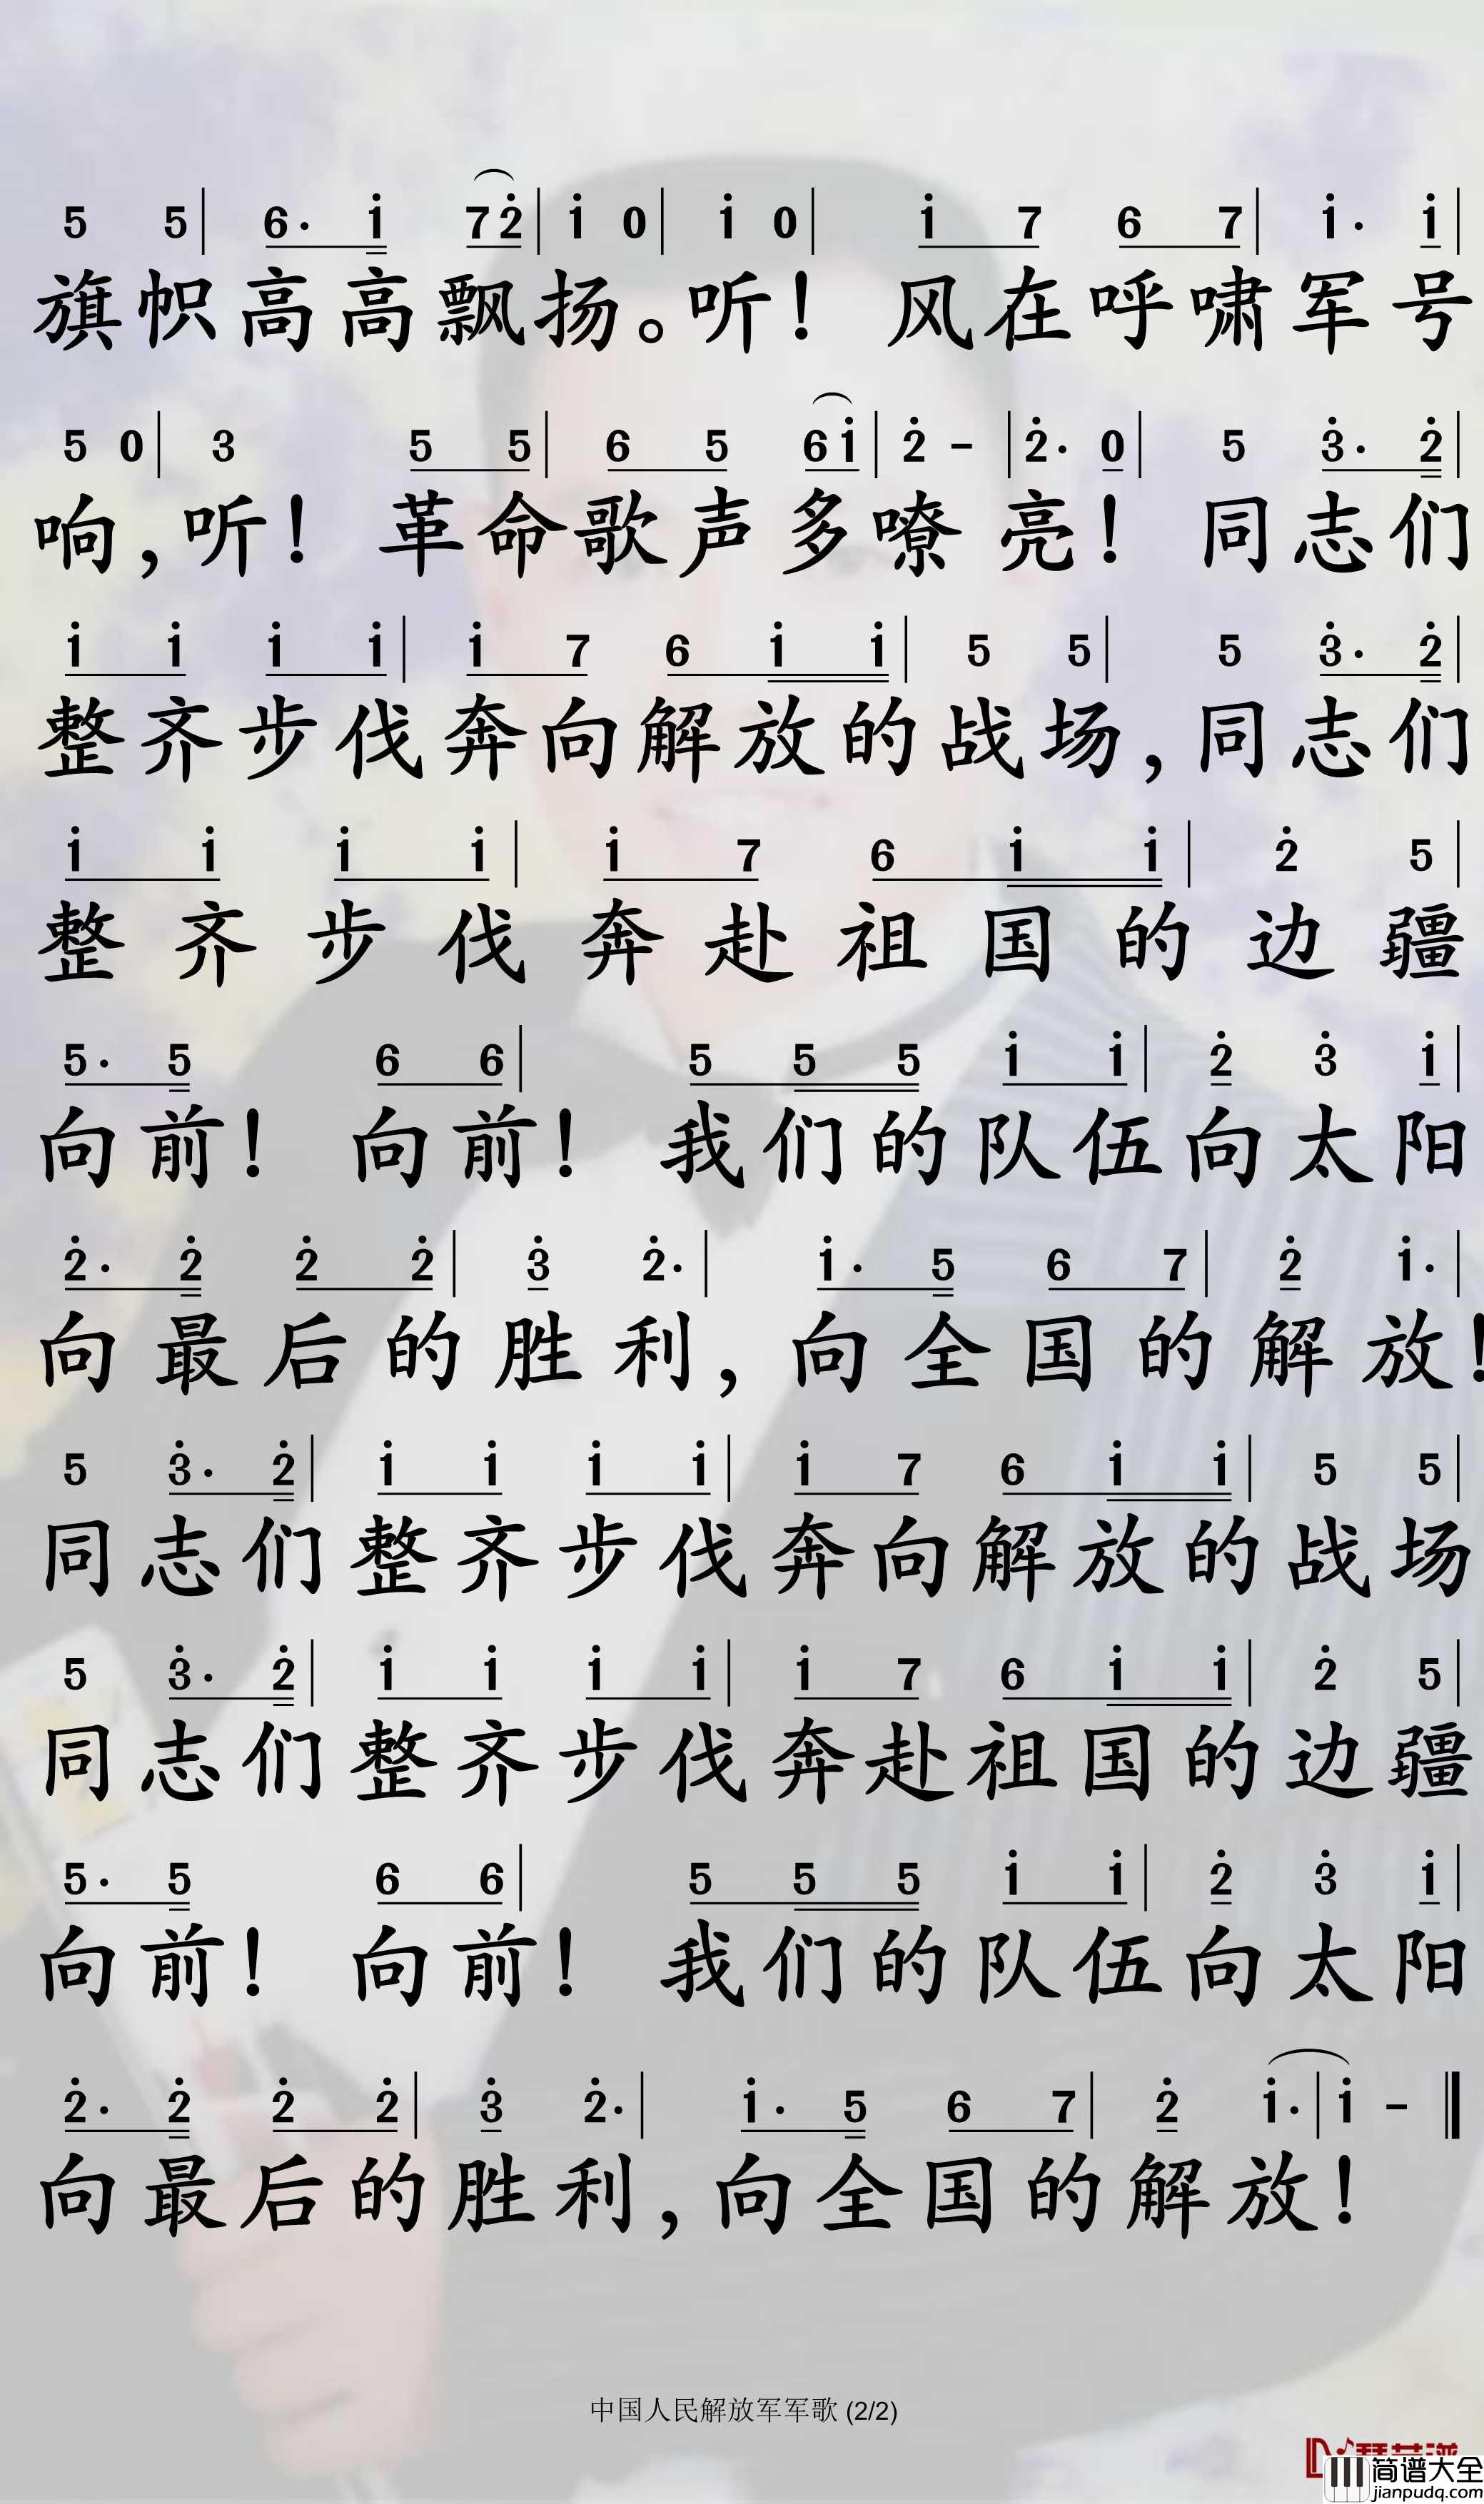 5 5 | 6. i 7 2 | i 0 | i 0 | i 7 6 7 | i. i |
旗帜高高飘扬。听！风在呼啸军号
5 0 | 3 5 5 | 6 5 6 i | 2 - | 2. 0 | 5 3. 2 |
响,听！革命歌声多嘹亮！同志们
i i i i | i 7 6 i i | 5 5 | 5 3. 2 |
整齐步伐奔向解放的战场,同志们
i i i i | i 7 6 i i | 2 5 |
整齐步伐奔赴祖国的边疆
5. 5 6 6 | 5 5 5 i i | 2 3 i |
向前！向前！我们的队伍向太阳
2. 2 2 2 | 3 2. | i. 5 6 7 | 2 i. |
向最后的胜利,向全国的解放！
5 3. 2 | i i i i | i 7 6 i i | 5 5 |
同志们整齐步伐奔向解放的战场
5 3. 2 | i i i i | i 7 6 i i | 2 5 |
同志们整齐步伐奔赴祖国的边疆
5. 5 6 6 | 5 5 5 i i | 2 3 i |
向前！向前！我们的队伍向太阳
2. 2 2 2 | 3 2. | i. 5 6 7 | 2 i. | i - ‖
向最后的胜利,向全国的解放！
中国人民解放军军歌 (2/2)
简谱大全
jianpudq.com